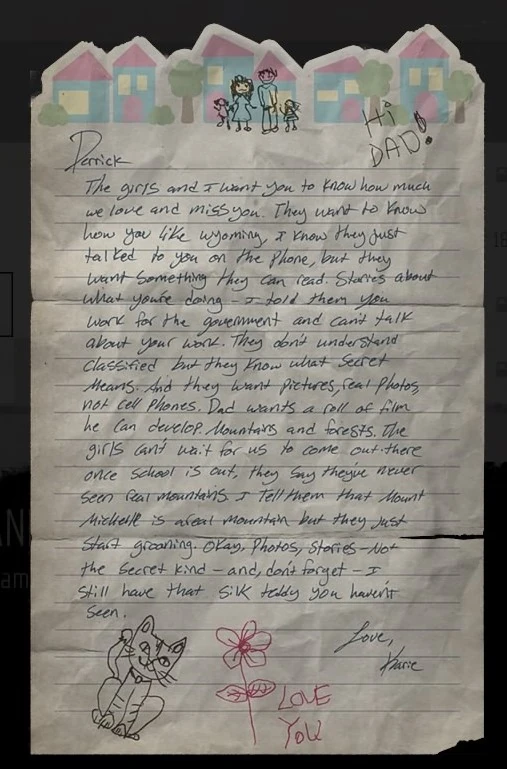 Hi
DAD!
Derrick
The girls and I want you to know how much
we love and miss you. They want to know
how you like Wyoming, I know they just
talked to you on the phone, but they
want something they can read. Stories about
what you're doing - I told them you
work for the government and can't talk
about your work. They don't understand
classified but they know what secret
means. And they want pictures, real photos,
not cell phones. Dad wants a roll of film
he can develop. Mountains and forests. The
girls can't wait for us to come out there
once school is out, they say they've never
seen real mountains. I tell them that Mount
Michelle is a real mountain but they just
start groaning. Okay, photos, stories - Not
the secret kind - and, don't forget - I
still have that silk teddy you haven't
seen.
Love,
Karie
LOVE
YOU